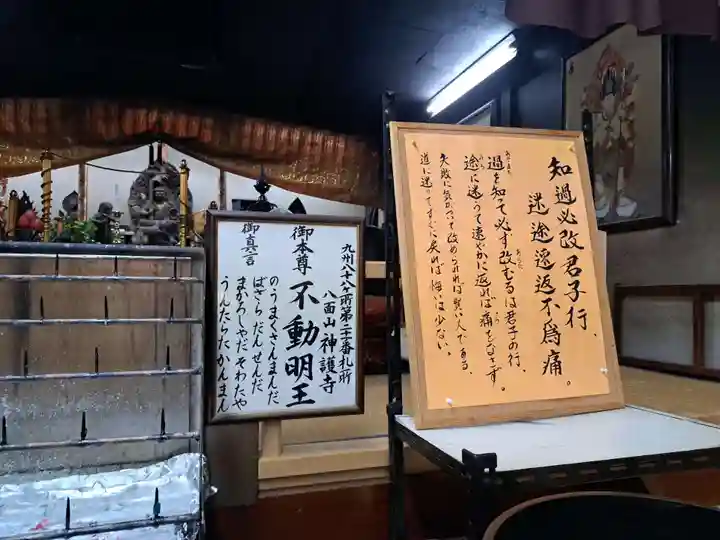 九州八十八ヶ所第二十番札所
八面山神護寺
御本尊 不動明王
御真言
のうまくさんまんだ
ばざらだんせんだ
まかろしやだそわたや
うんたらたかんまん
知過必改君子行、
迷途速返不為痛。
過を知って必ず改むるは君子の行、
途に迷って速やかに返れば痛をなさず。
失敗に気がついて改められれば賢い人である、
道に迷ってすぐに戻れば悔いは少ない。